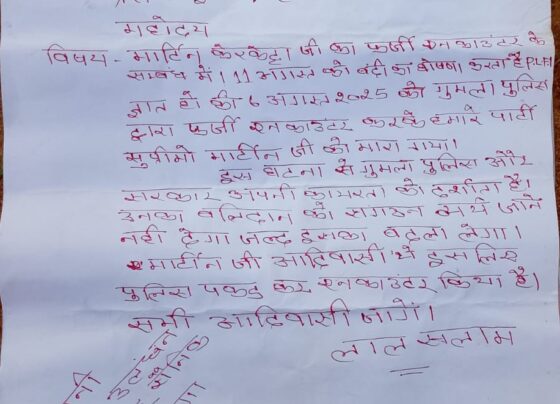 महोदय
विषय - मार्टिन केरकेट्टा जी का फर्जी एनकाउंटर के
संबंध में। 11 अगस्त को बंदी का घोषणा करता है PLFI
ज्ञात हो की 6 अगस्त 2025 को गुमला पुलिस
द्वारा फर्जी एनकाउंटर करके हमारे पार्टी
सुप्रीमो मार्टीन जी को मारा गया।
इस घटना से गुमला पुलिस और
सरकार अपनी कायरता को दर्शाता है।
उनका बलिदान को संगठन व्यर्थ जाने
नही देगा जल्द इसका बदला लेगा।
मार्टीन जी आदिवासी थे इस लिए
पुलिस पकड़ कर एनकाउंटर किया है।
सभी आदिवासी जागें।
लाल सलाम